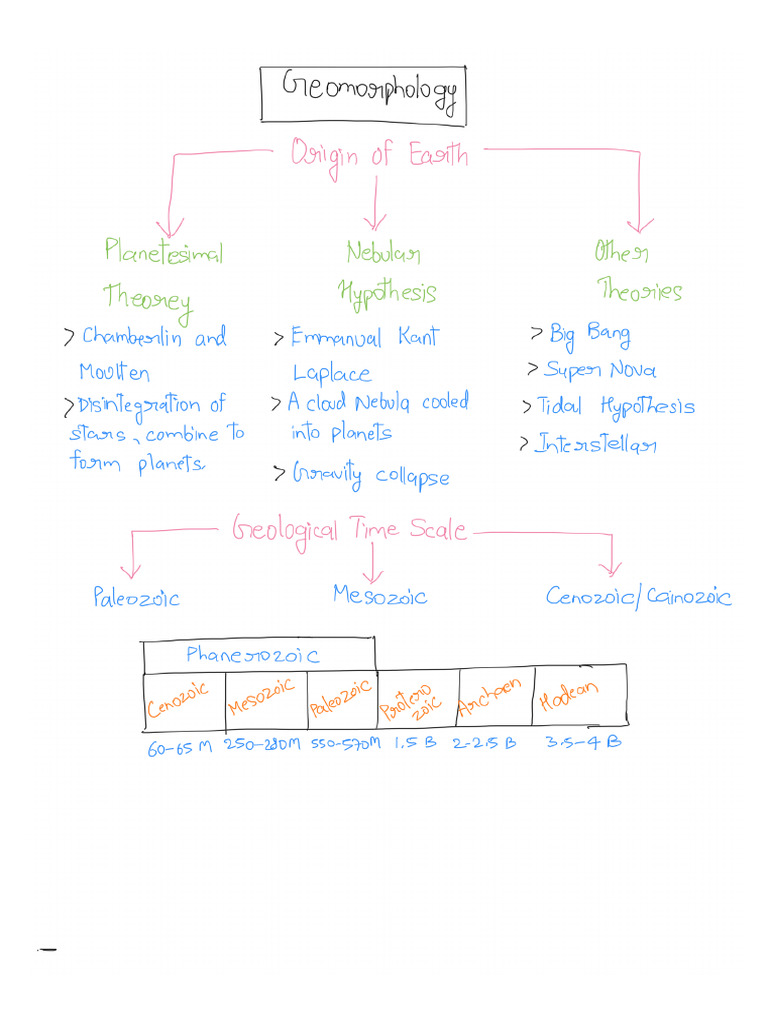 Geomorphology
Origin of Earth
Planetesimal
Theorey
> Chamberlin and
Moulten
> Disintegration of
stars, combine to
form planets.
Nebular
Hypothesis
> Emmanual Kant
Laplace
> A cloud Nebula cooled
into planets
> Gravity collapse
Other
Theories
> Big Bang
> Super Nova
> Tidal Hypothesis
> Interstellar
Geological Time Scale
Paleozoic
Mesozoic
Cenozoic/Cainozoic
Phanerozoic
Cenozoic
Mesozoic
Paleozoic
Protero
zoic
Archaen
Hadean
60-65 M
250-280M
550-570M
1.5 B
2-2.5 B
3.5-4 B